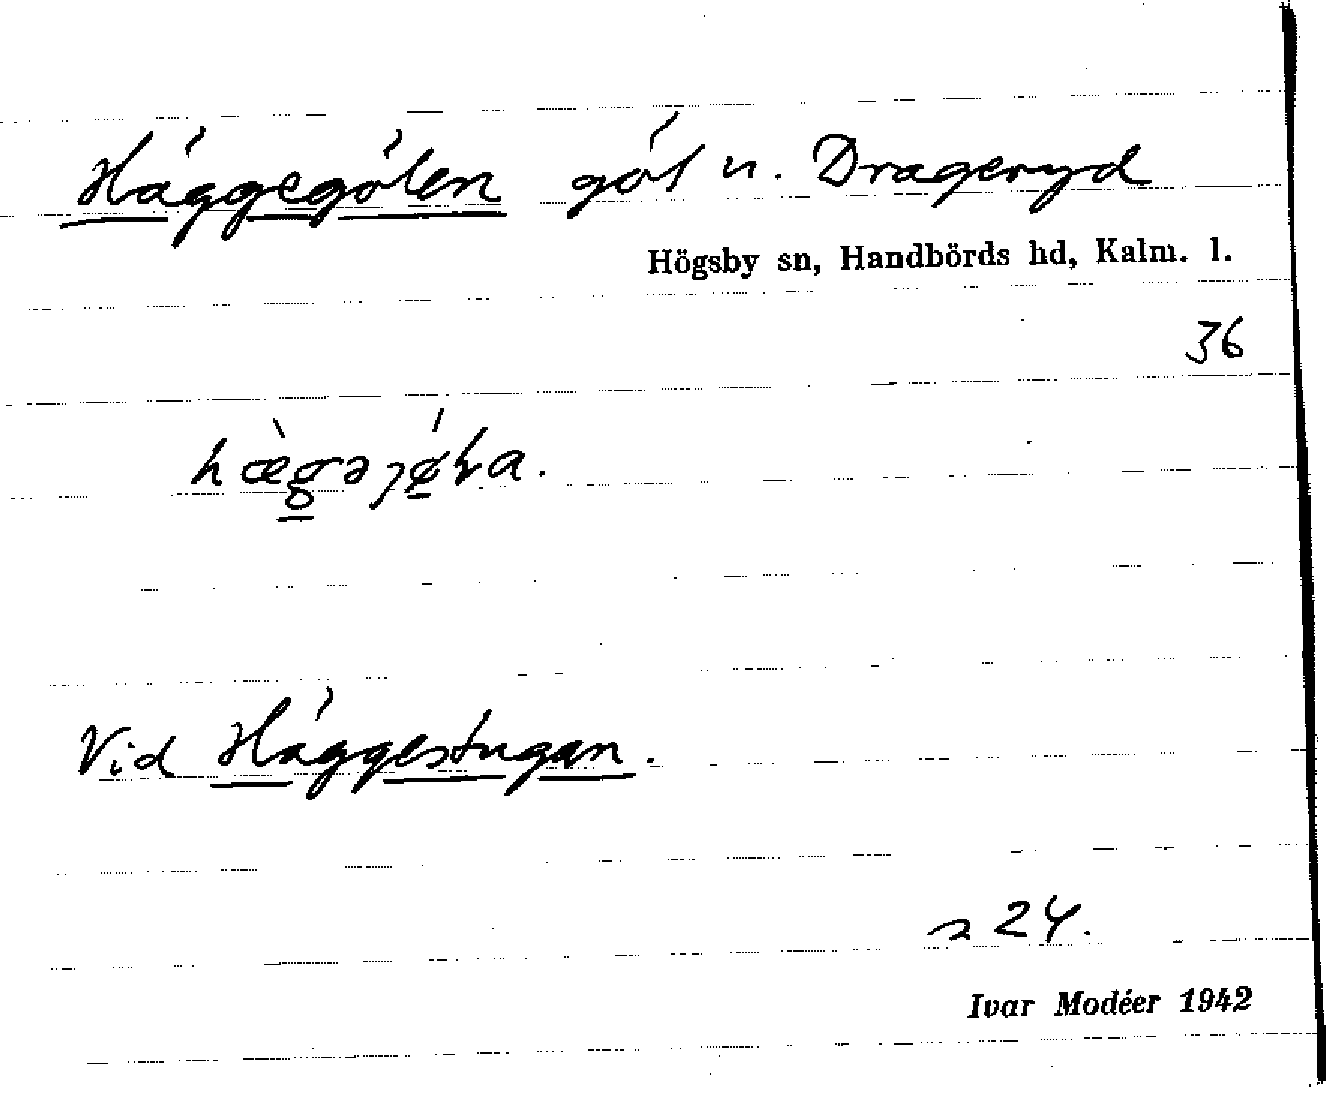 Häggegölen göl n. Drageryd
Högsby sn, Handbörds hd, Kalm. l.
36
Vid Häggestugan.
s 24.
Ivar Modéer 1942